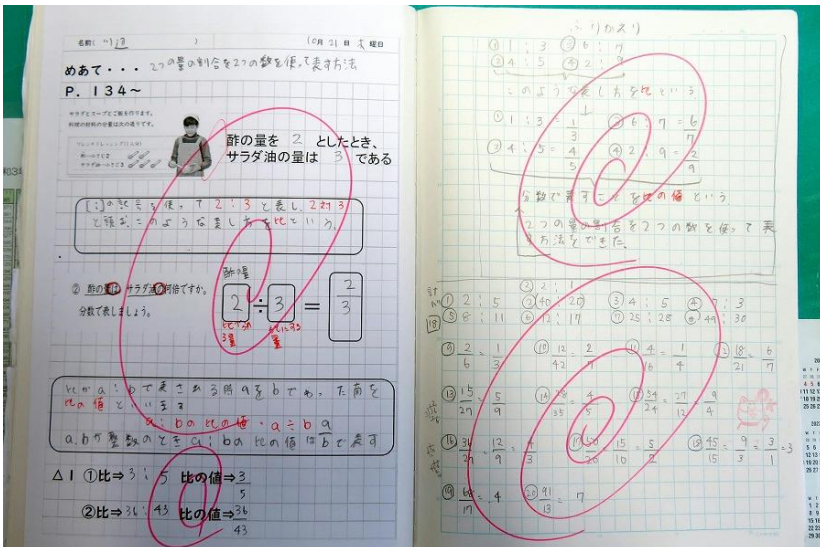 名前( )10月21日 木曜日
めあて・・・2つの量の割合を2つの数を使って表す方法
P.134〜
サラダとスープとご飯を作ります。
料理の材料の分量は次の通りです。
酢の量を 2 としたとき、
サラダ油の量は 3 である
[:]の記号を使って 2:3 と表し、2対3
と読む。このような表し方を比という。
酢の量
② 酢の量は サラダ油の何倍ですか。
分数で表しましょう。
2 ÷ 3 = 2/3
比べる量
量
比がa:bで表される時aをbでわった商を
比の値といいます
a:bの比の値・a÷b
a.bが整数のときa:bの比の値はa/bで表す
△1 ①比⇒3:5 比の値⇒3/5
②比⇒36:43 比の値⇒36/43
ふりかえり
①1:3 ②6:7
③4:5 ④2:9
このような表し方を比という
①1:3=1/3 ②6:7=6/7
③4:5=4/5 ④2:9=2/9
分数で表すことを比の値という
2つの量の割合を2つの数を使って表
す方法をできた。
②2:1
①2:5 ②40:20 ③4:5 ④7:3
⑤8:11 ⑥12:17 ⑦25:28 ⑧49:30
⑨2/6=1/3 ⑩12/42=2/7 ⑪4/16=1/4 ⑫18/21=6/7
⑬15/27=5/9 ⑭28/35=4/5 ⑮54/24=27/12=9/4
⑯36/27=12/9=4/3 ⑰50/20=15/10=5/2 ⑱45/15=9/3=3/1=3
⑲68/17=4 ⑳91/13=7